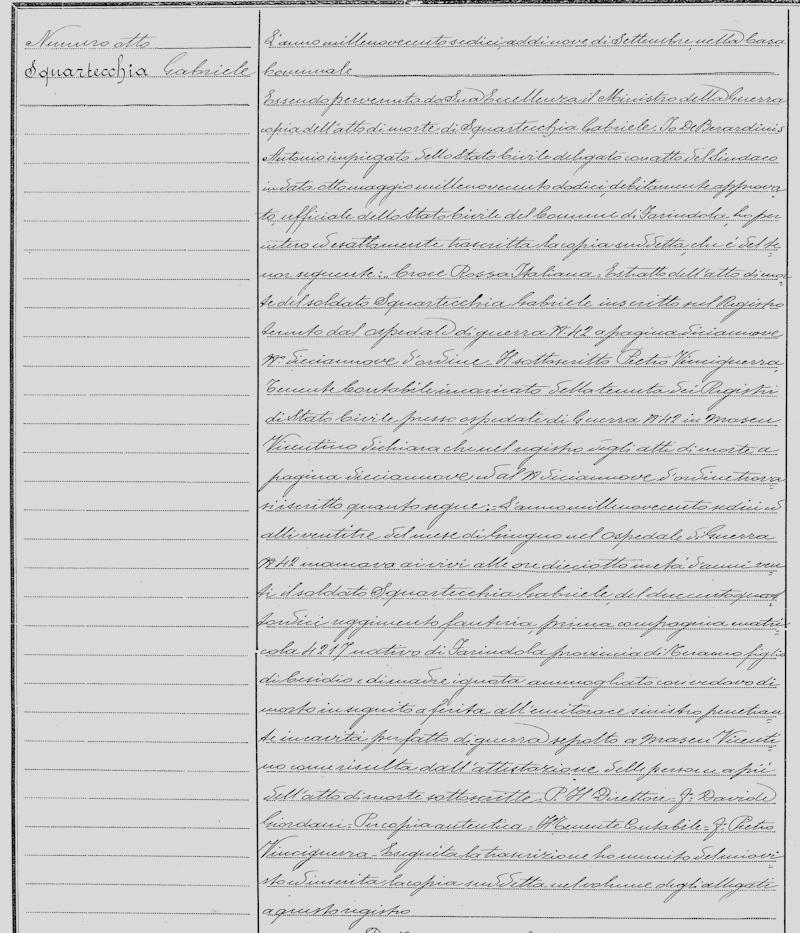 Numero otto
Squartecchia Gabriele
L'anno millenovecento sedici, addi nove di Settembre, nella Casa
Comunale
Essendo pervenuto da Sua Eccellenza il Ministro della Guerra
copia dell'atto di morte, di Squartecchia Gabriele. Io De Berardinis
Antonio impiegato dello Stato Civile delegato con atto del Sindaco
in data otto maggio millenovecentododici, debitamente approva
to, ufficiale dello Stato Civile del Comune di Farindola, ho per
intero ed esattamente trascritta la copia suddetta, che è del te
nor seguente: Croce Rossa Italiana = Estratto dell'atto di mor
te del soldato Squartecchia Gabriele inscritto nel Registro
tenuto dal ospedale di guerra N. 42 a pagina diciannove
No diciannove d'ordine. Il sottoscritto Pietro Vinciguerra,
Tenente Contabile incaricato della tenuta dei Registri
di Stato Civile presso ospedali di Guerra N 42 in
Vicentino dichiara che nel registro degli atti di morte, a
pagina diciannove, ed al N diciannove d'ordine trova
si iscritto quanto segue: = L'anno millenovecento sedici ed
alli ventitre del mese di Giugno nel ospedale di Guerra
N 42 mancava ai vivi alle ore diciotto in età d'anni ven
ti il soldato Squartecchia Gabriele, del duecentoquat
tordici reggimento fanteria, prima compagnia matri
cola 4217 nativo di Farindola provincia di Teramo figlio
di Cesidio e di madre ignota ammogliato con vedovo di
morto in seguito a ferita all'emitorace sinistro penetran
te in cavità per fatto di guerra, sepolto a Vicenti
no come risulta dall'attestazione delle persone a piè
dell'atto di morte sottoscritte = P. Il Direttore = F° Davide
Giordani = Per copia autentica = Il Tenente Contabile = F° Pietro
Vinciguerra = Eseguita la trascrizione ho munito del mio vi
sto ed inserita la copia suddetta nel volume degli allegati
a questo registro